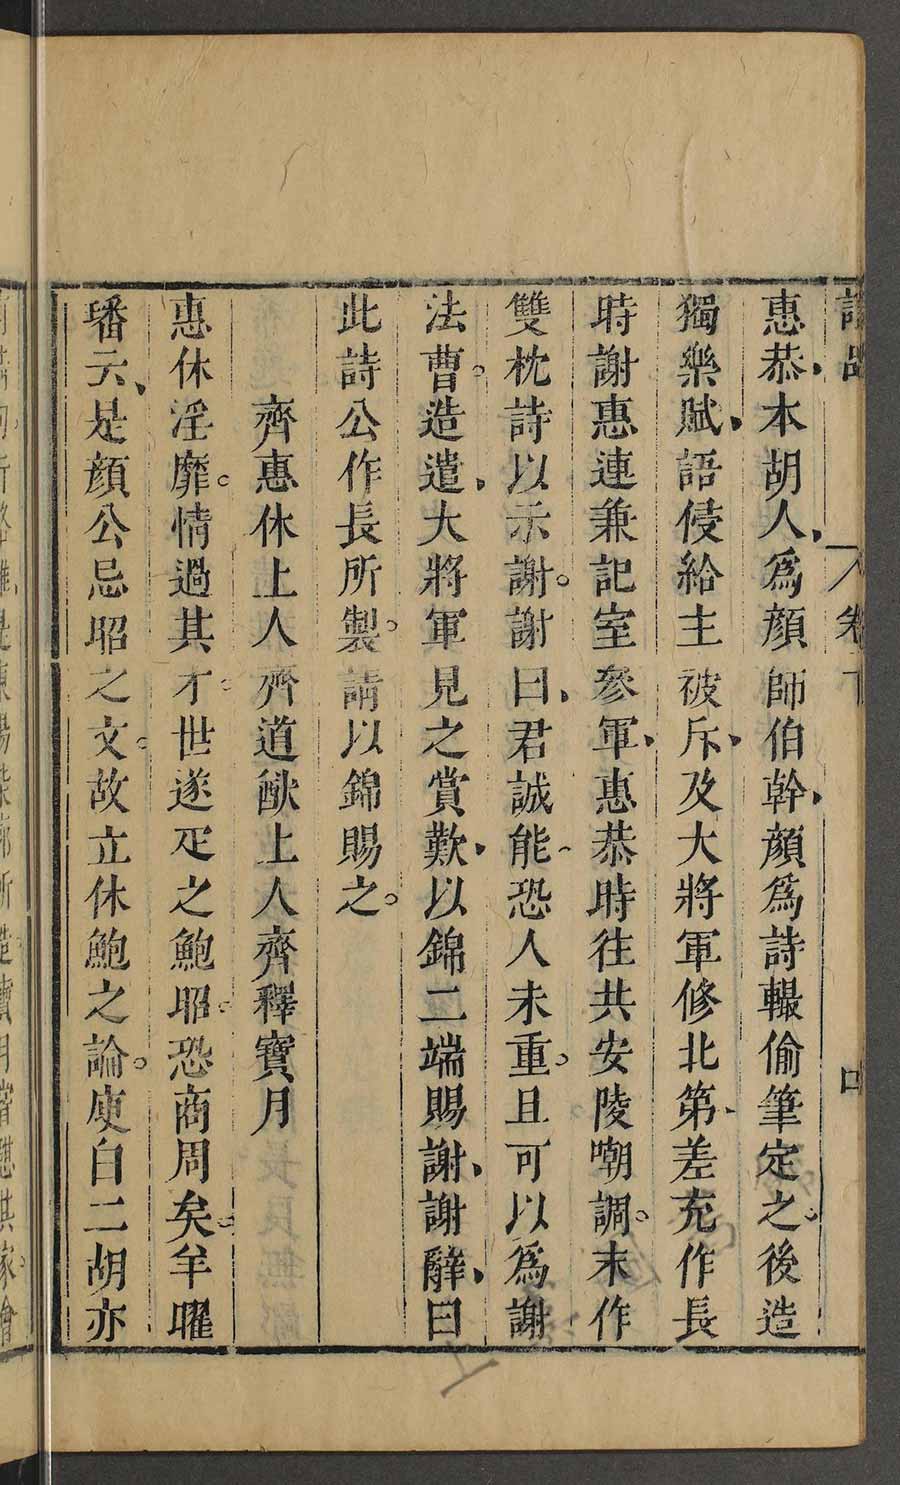 惠恭、本胡人、爲顏師伯幹、顏爲詩輙偷筆定之。後造
獨樂賦、語侵給主被斥、及大將軍修北第、差充作長
時謝惠連兼記室參軍、惠恭時往共安陵嘲調。末作
雙枕詩以示謝。謝曰、君誠能、恐人未重。且可以爲謝
法曹。造遣、大將軍見之賞歎、以錦二端賜謝、謝辭、曰
此詩公作長所製。請以錦賜之。
齊惠休上人齊道猷上人齊釋寶月
惠休淫靡。情過其才。世遂疋之鮑昭。恐商周矣。羊曜
璠云、是顏公忌昭之文。故立休鮑之論。庾白二胡亦